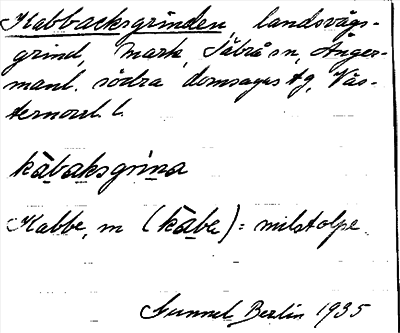 Kabbacksgrinden, landsvägs-
grind, Mark, Säbrå sn, Ånger-
manl. södra domsagas tg, Väs-
ternorrl. l.
kàbaksgrina
Kabbe, m (kàbe) = milstolpe.
Gunnel Berlin 1935